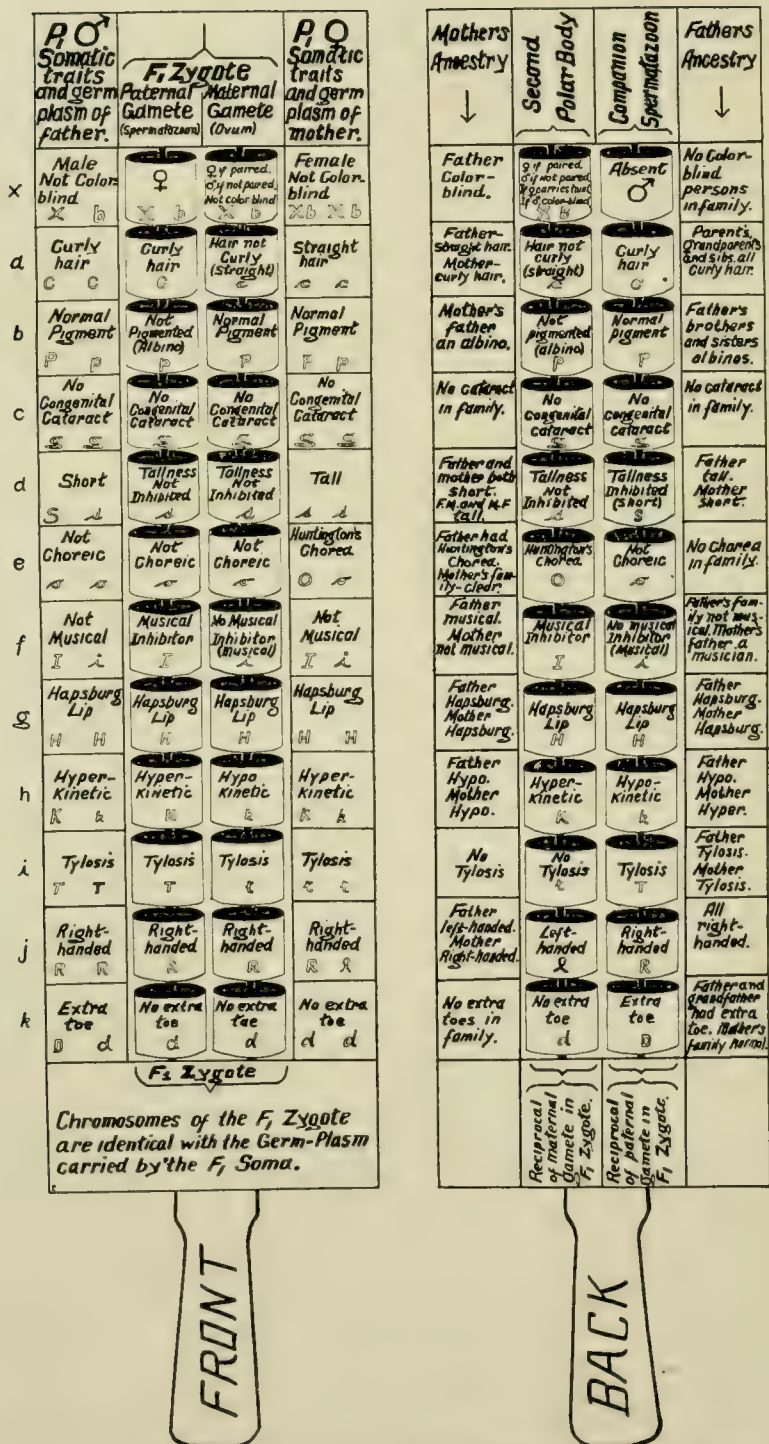 P₁ ♂
Somatic
traits
and germ
plasm of
father.
F₁ Zygote
Paternal
Gamete
(Spermatazoon)
Maternal
Gamete
(Ovum)
P₁ ♀
Somatic
traits
and germ
plasm of
mother.
x
Male
Not Color-
blind
X b
♀
X b
♀ if paired.
♂ if not pared.
Not color blind
X b
Female
Not Color-
blind
Xb Xb
a
Curly
hair
C C
Curly
hair
C
Hair not
Curly
(straight)
c
Straight
hair
c c
b
Normal
Pigment
P p
Not
Pigmented
(Albino)
p
Normal
Pigment
P
Normal
Pigment
P p
c
No
Congenital
Cataract
No
Congenital
Cataract
No
Congenital
Cataract
No
Congenital
Cataract
d
Short
S s
Tallness
Not
Inhibited
s
Tallness
Not
Inhibited
s
Tall
s s
e
Not
Choreic
o o
Not
Choreic
o
Not
Choreic
o
Huntington's
Chorea
O o
f
Not
Musical
I i
Musical
Inhibitor
I
No Musical
Inhibitor
(musical)
i
Not
Musical
I i
g
Hapsburg
Lip
H H
Hapsburg
Lip
H
Hapsburg
Lip
H
Hapsburg
Lip
H H
h
Hyper-
kinetic
K k
Hyper-
kinetic
K
Hypo
kinetic
k
Hyper-
kinetic
K k
i
Tylosis
T T
Tylosis
T
Tylosis
t
Tylosis
t t
j
Right-
handed
R R
Right-
handed
R
Right-
handed
R
Right-
handed
R r
k
Extra
toe
D d
No extra
toe
d
No extra
toe
d
No extra
toe
d d
F₁ Zygote
Chromosomes of the F₁ Zygote
are identical with the Germ-Plasm
carried by the F₁ Soma.
FRONT
Mothers
Ancestry
↓
Second
Polar Body
Companion
Spermatazoon
Fathers
Ancestry
↓
Father
Color-
blind.
♀ if paired
♂ if not paired
If ♂ color-blind
X b
Absent
♂
No Color-
blind
persons
in family.
Father-
straight hair.
Mother-
curly hair.
Hair not
curly
(straight)
c
Curly
hair
C
Parent's,
Grandparents
and sibs. all
Curly hair.
Mother's
father
an albino.
Not
pigmented
(albino)
p
Normal
pigment
P
Father's
brothers
and sisters
albinos.
No cataract
in family.
No
congenital
Cataract
No
congenital
Cataract
No cataract
in family.
Father and
mother both
short.
F.M. and M.F
tall.
Tallness
Not
Inhibited
s
Tallness
Inhibited
(short)
S
Father
tall.
Mother
Short.
Father had
Huntington's
Chorea.
Mother's fam-
ily-clear.
Huntington's
Chorea
O
Not
Choreic
o
No Chorea
in family.
Father
musical.
Mother
not musical.
Musical
Inhibitor
I
No musical
Inhibitor
(Musical)
i
Father's fam-
ily not mus-
ical. Mother's
father a
musician.
Father
Hapsburg.
Mother
Hapsburg.
Hapsburg
Lip
H
Hapsburg
Lip
H
Father
Hapsburg.
Mother
Hapsburg.
Father
Hypo.
Mother
Hypo.
Hyper-
kinetic
K
Hypo-
kinetic
k
Father
Hypo.
Mother
Hyper.
No
Tylosis
No
Tylosis
t
Tylosis
T
Father
Tylosis.
Mother
Tylosis.
Father
left-handed.
Mother
Right-handed.
Left-
handed
r
Right-
handed
R
All
right-
handed.
No extra
toes in
family.
No extra
toe
d
Extra
toe
D
Father and
grandfather
had extra
toe. Mother's
family normal.
Reciprocal
of maternal
Gamete in
F₁ Zygote.
Reciprocal
of paternal
Gamete in
F₁ Zygote.
BACK